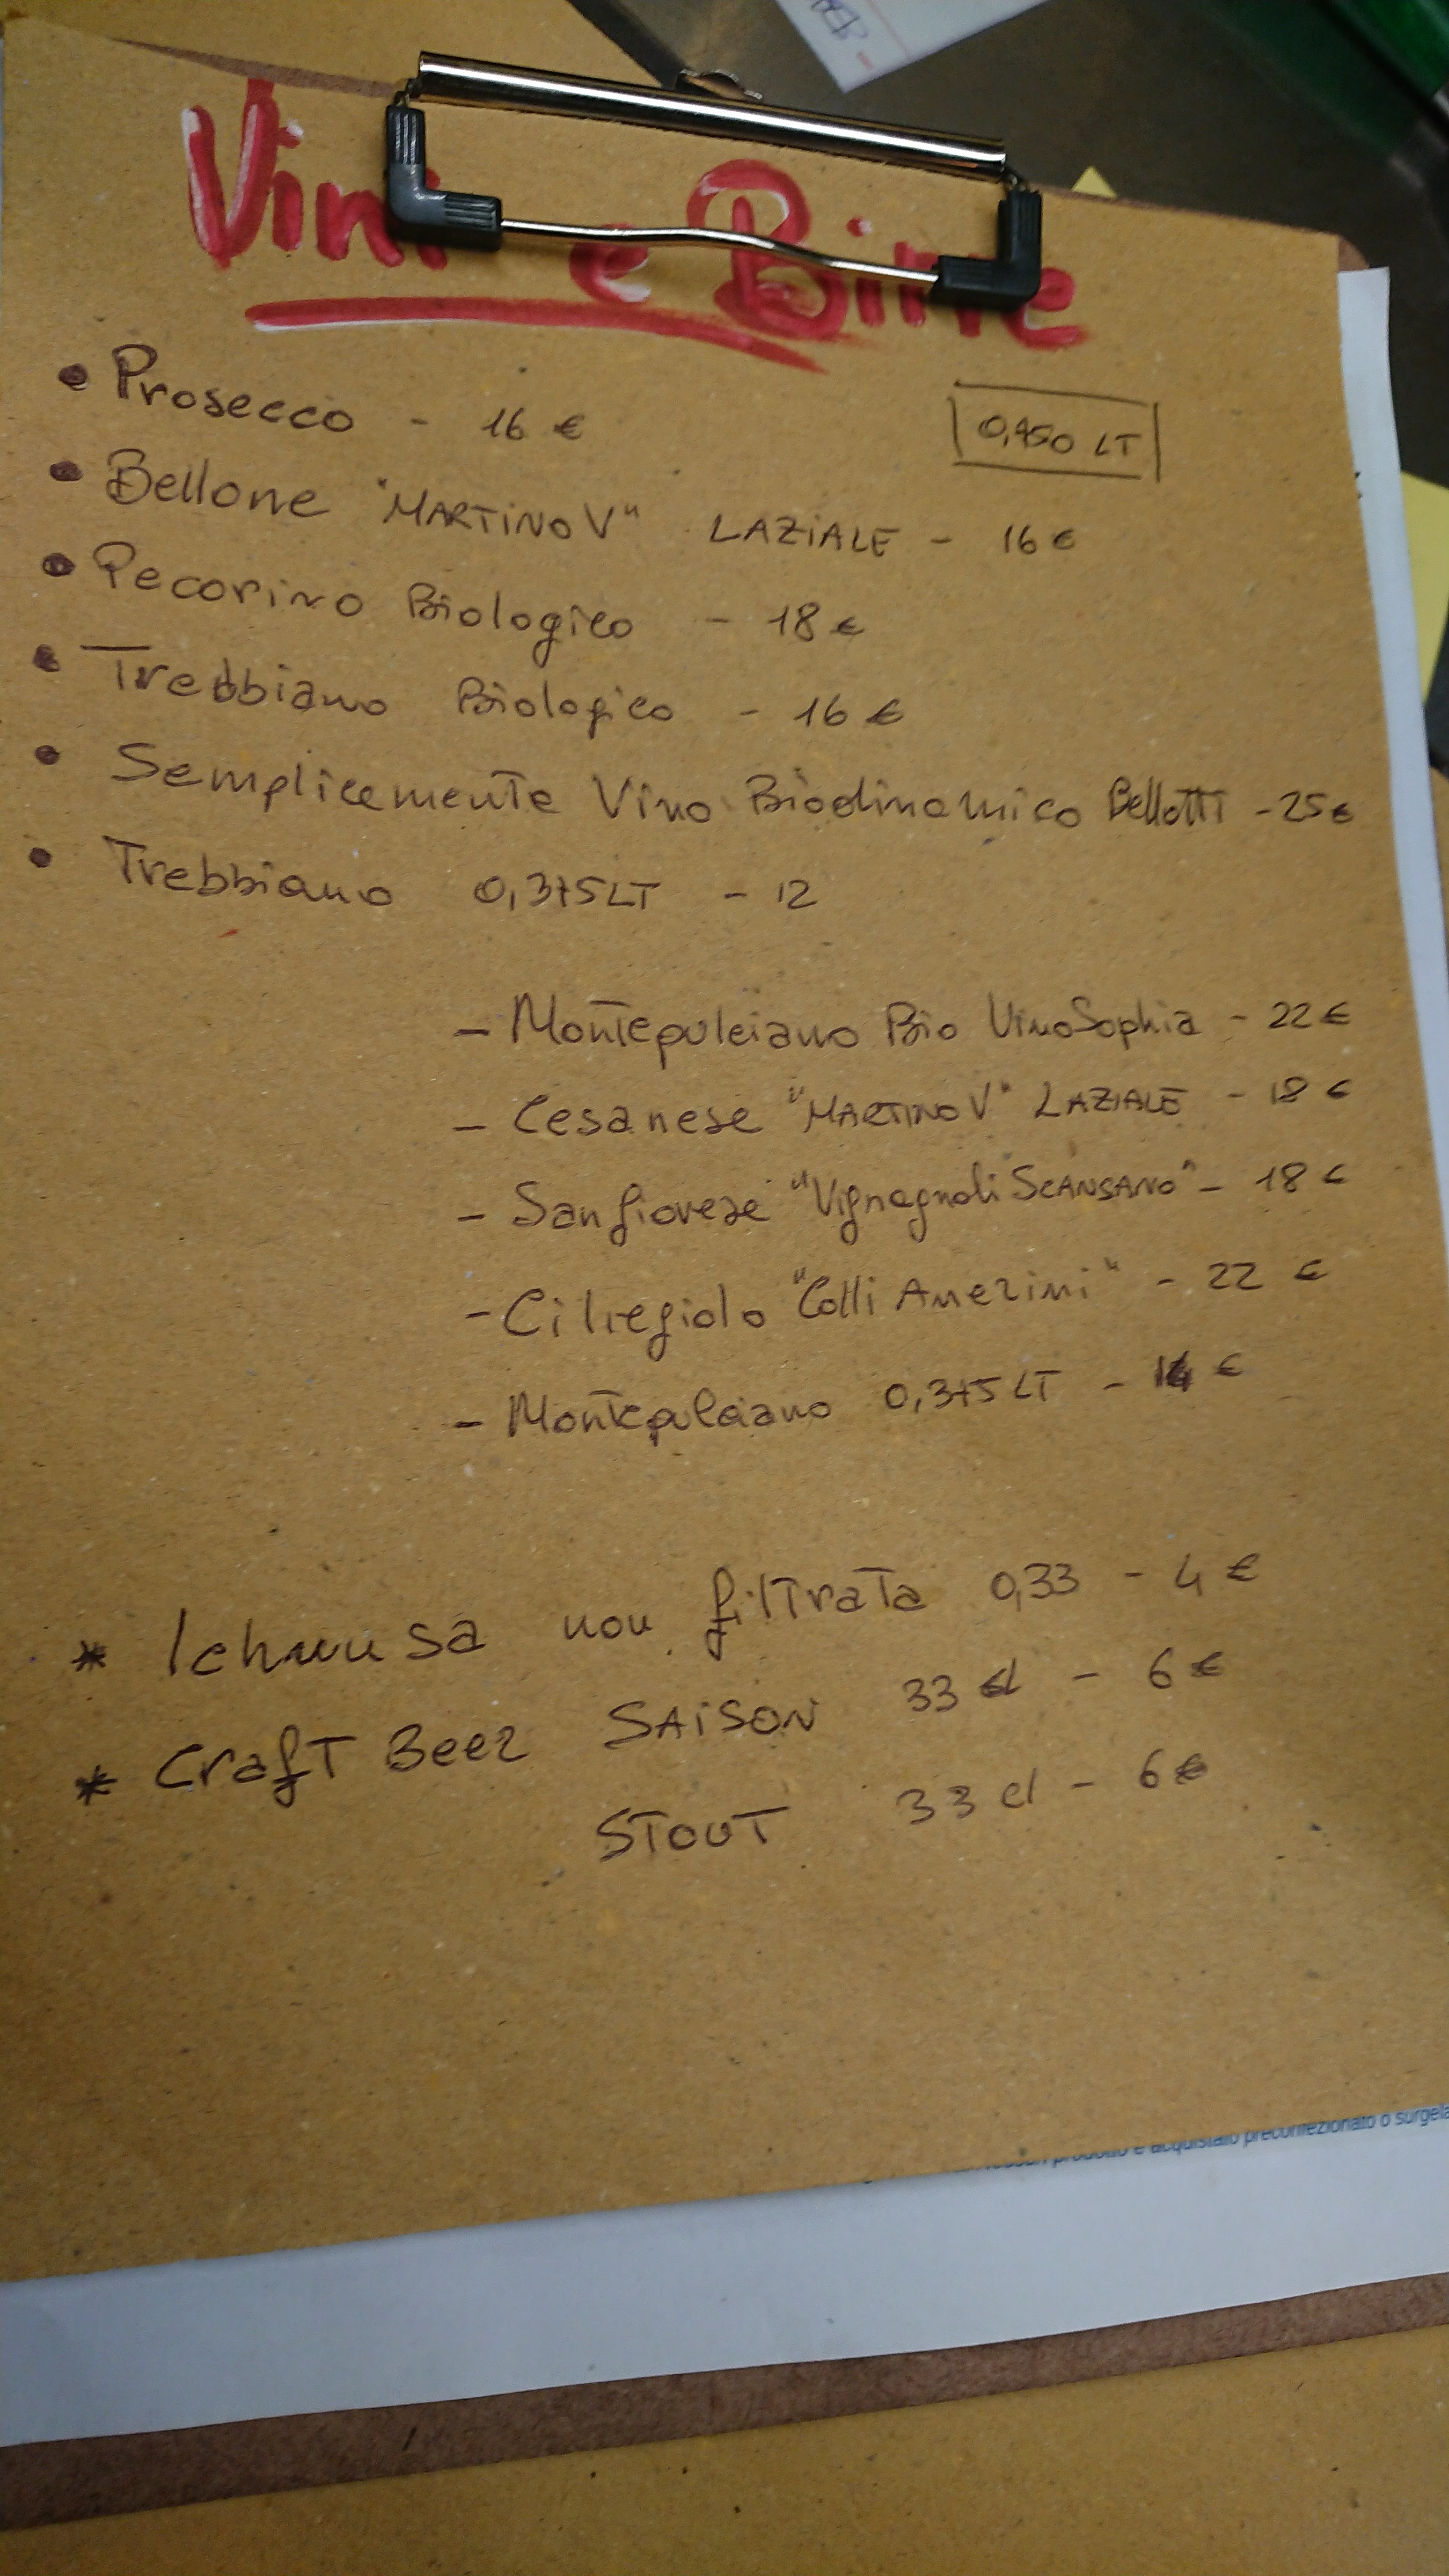 Vini e Birre
0,750 LT
• Prosecco - 16 €
• Bellone "MARTINO V" LAZIALE - 16 €
• Pecorino Biologico - 18 €
• Trebbiano Biologico - 16 €
• Semplicemente Vino Biodinamico Bellotti - 25 €
• Trebbiano 0,375 LT - 12
- Montepulciano Bio VinoSophia - 22 €
- Cesanese "MARTINO V" LAZIALE - 18 €
- Sangiovese "Vignagnoli SCANSANO" - 18 €
- Ciliegiolo "Colli Amerini" - 22 €
- Montepulciano 0,375 LT - 14 €
* Ichnusa non filtrata 0,33 - 4 €
* Craft Beer SAISON 33 cl - 6 €
STOUT 33 cl - 6 €
prodotto è acquistato preconfezionato o surgela